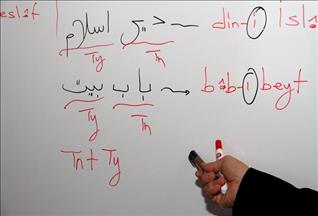 eslâf
دین اسلام → din-i islâ
Ty Tn
باب بیت → bâb-i beyt
Ty Tn
Tn + Ty